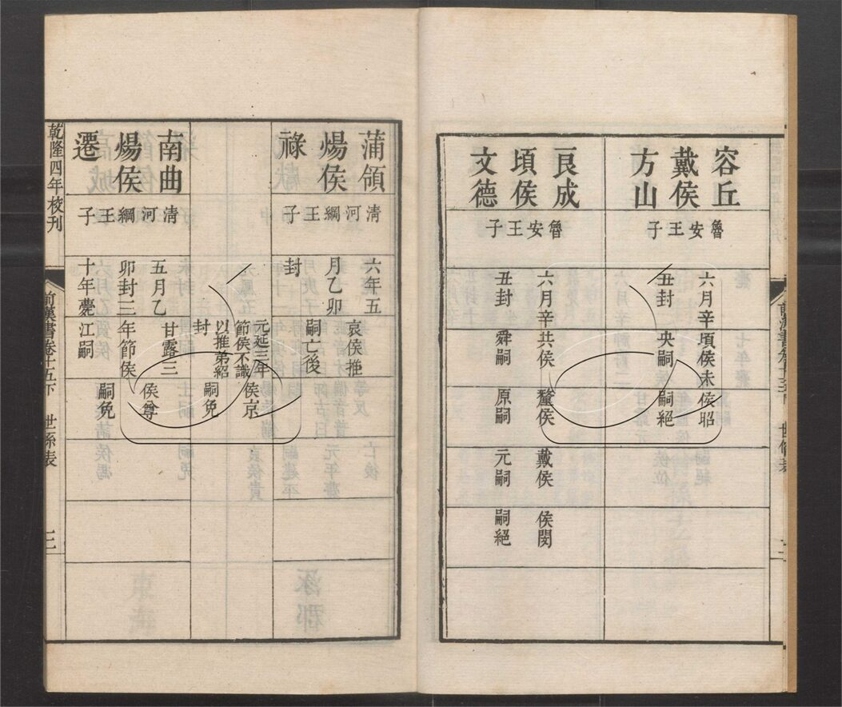 容丘
戴侯
方山
魯安王子
六月辛
丑封
頃侯未
央嗣
侯昭
嗣絕
良成
頃侯
文德
魯安王子
六月辛
丑封
共侯
舜嗣
釐侯
原嗣
戴侯
元嗣
侯閔
嗣絕
蒲領
煬侯
祿
清河綱王子
六年五
月乙卯
封
哀侯推
嗣亡後
元延三年
節侯不識
以推弟紹
封
侯京
嗣免
南曲
煬侯
遷
清河綱王子
五月乙
卯封三
十年薨
甘露三
年節侯
江嗣
侯尊
嗣免
乾隆四年校刊
前漢書卷十五下
世系表
三